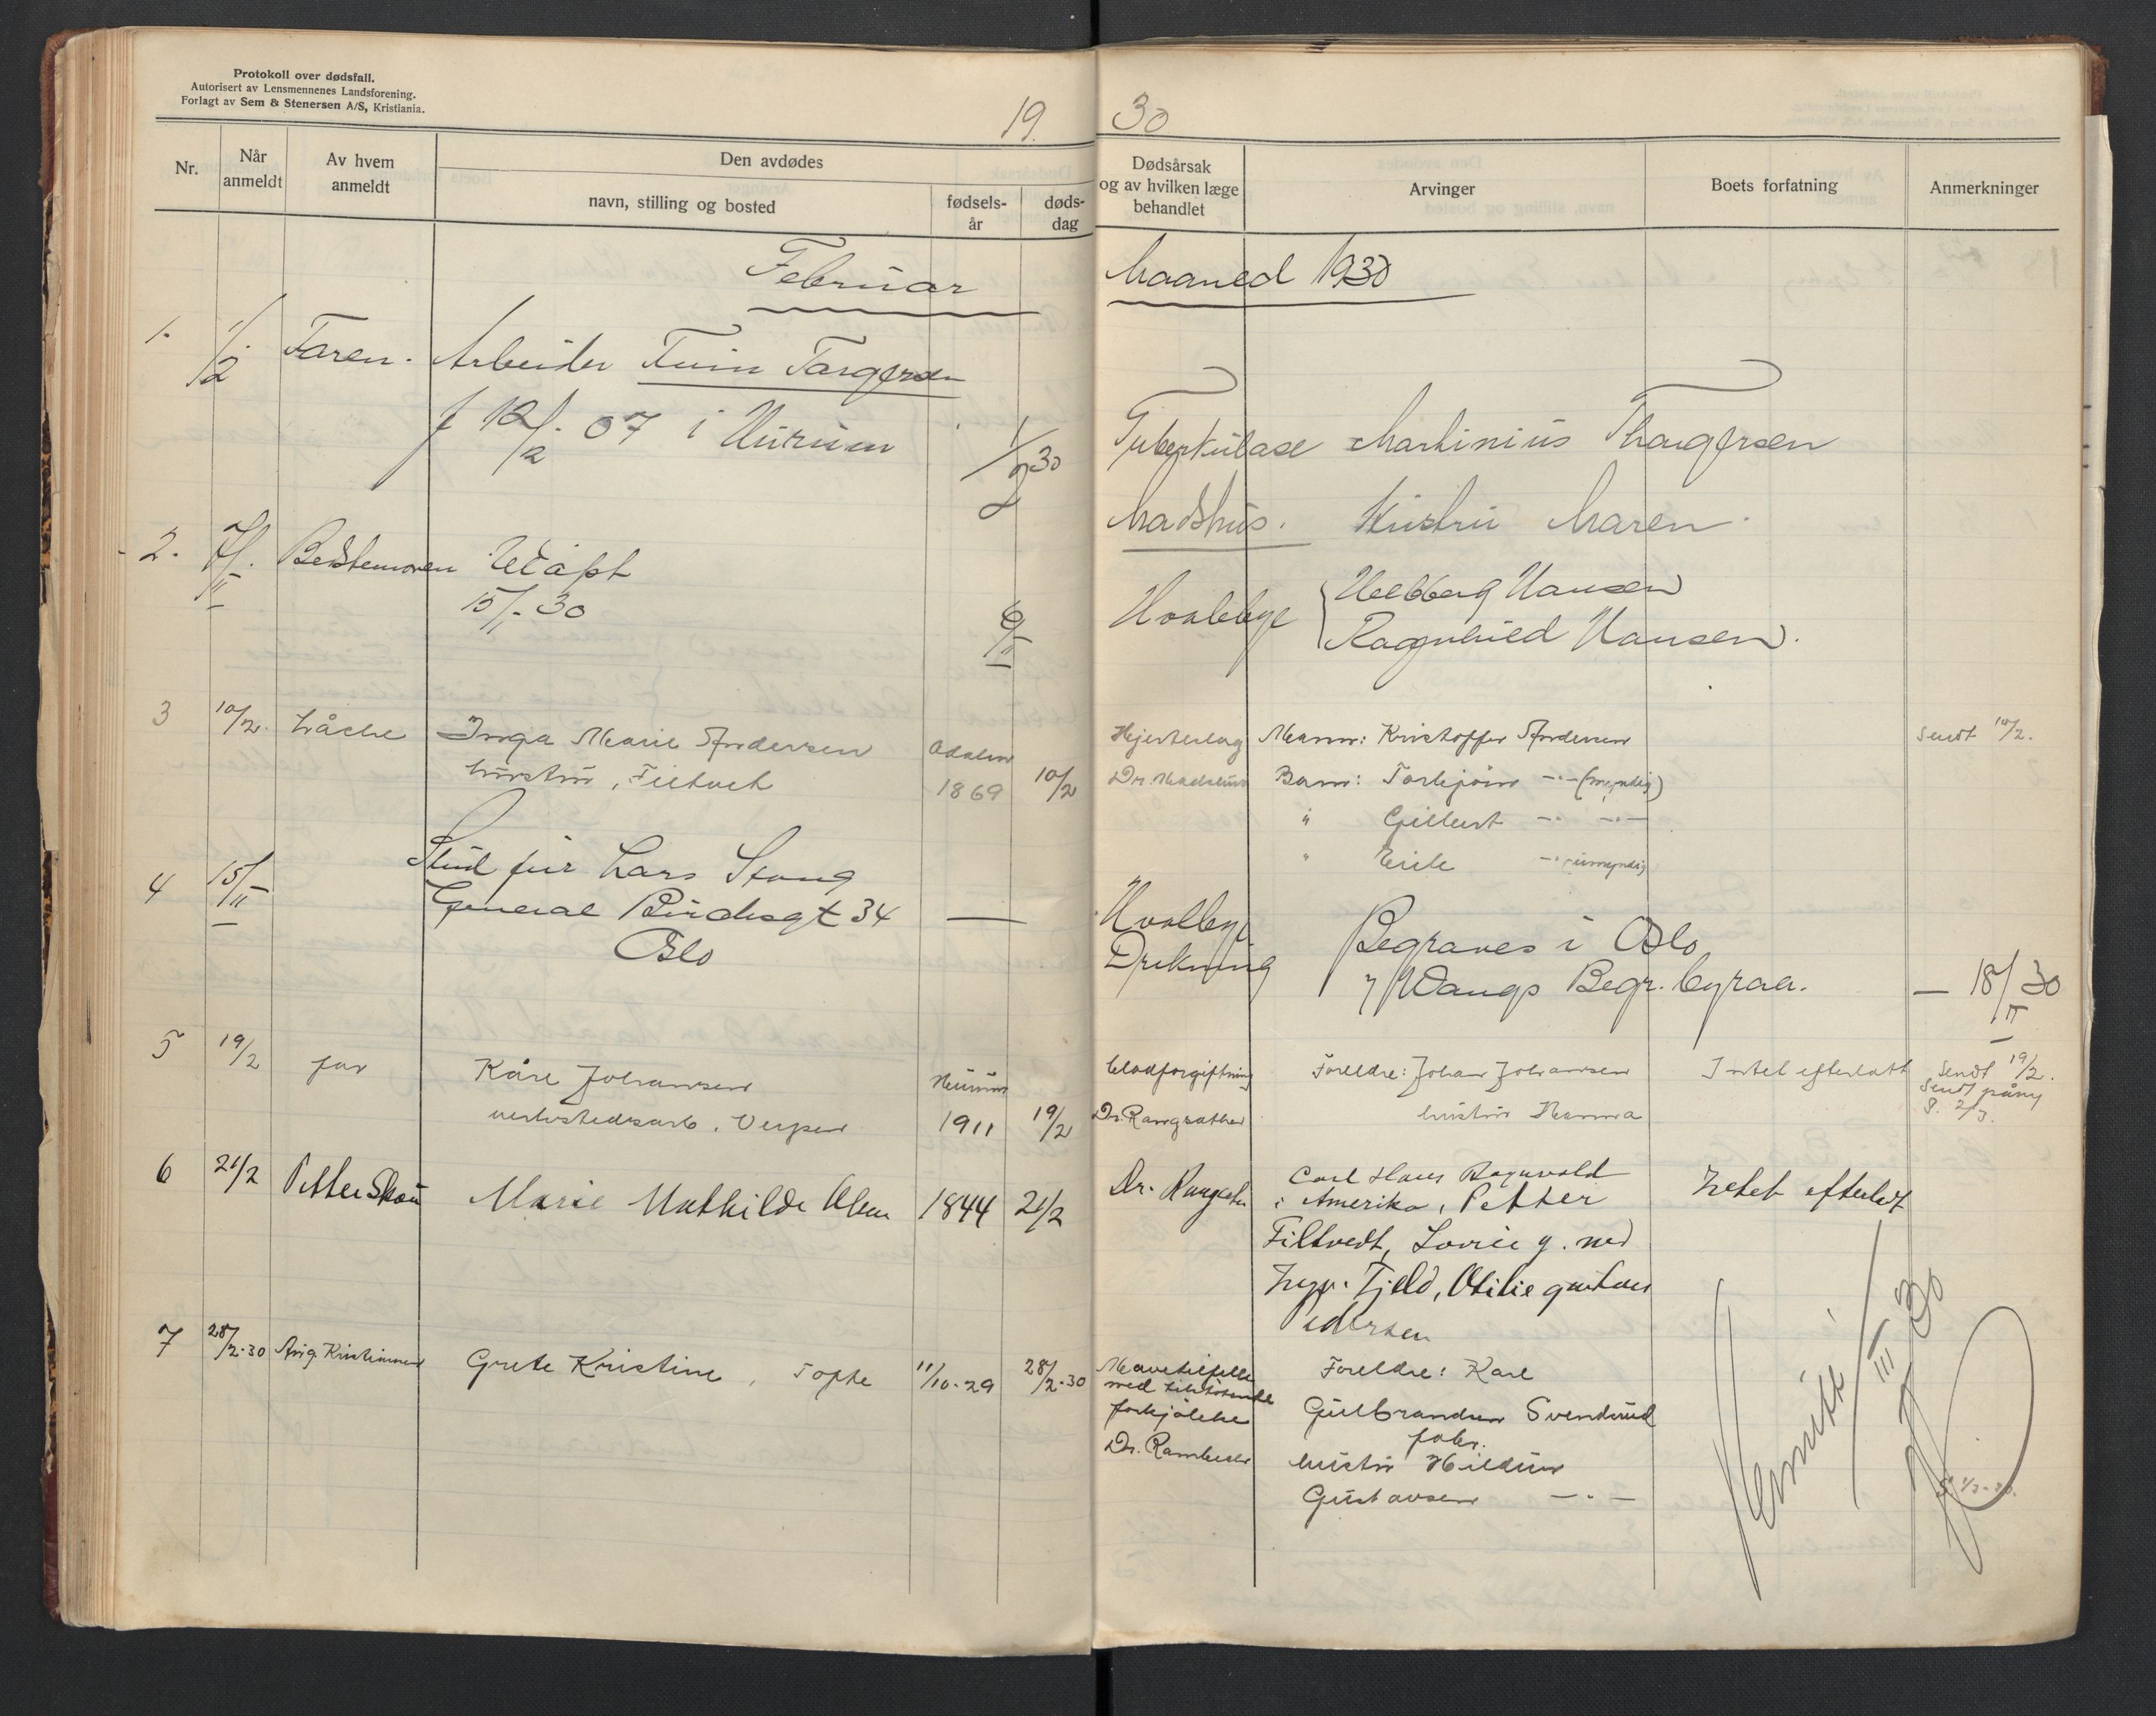 Protokoll over dødsfall.
Autorisert av Lensmennenes Landsforening.
Forlagt av Sem & Stenersen A/S, Kristiania.
19 30
Nr.
Når anmeldt
Av hvem anmeldt
Den avdødes
navn, stilling og bosted
fødsels-år
døds-dag
Dødsårsak og av hvilken læge behandlet
Arvinger
Boets forfatning
Anmerkninger
Februar Maaned 1930
1. 1/2 Faren. Arbeider Finn Torgersen
f 12/2 07 i Hurum 1/2 30 Tuberkulose Martinius Thorgersen
Madshus. Hustru Maren.
2. 7/II Bedstemoren Udøpt
15/1 30 6/II Hvalbye Hedberg Hansen
Ragnhild Hansen.
3 10/2 Inga Marie Andersen Hjerteslag Mann: Kristoffer Andersen Sendt 10/2.
hustru, Filtvet 1869 10/2 Dr. Madshus Barn: Torbjørn -"- (myndig)
" Gilbert -"- -"-
" Eile -"- umyndig
4 15/II Stud jur Lars Stang
General Birchsgt 34 — Hvalbye
Oslo Drukning Begraves i Oslo
v/ Wangs Begr. byraa. — 18/II 30
5 19/2 far Kåre Johansen Hurum blodforgiftning Foreldre: Johan Johansen Intet efterlatt Sendt 19/2.
verkstedsarb. Verpen 1911 19/2 Dr. Rangsæther hustru Hanna Sendt påny
S. 2/3.
6 21/2 Petter Skau Marie Mathilde Olsen 1844 21/2 Dr. Rangseter Carl Hans Ragnvald Intet efterlat
i Amerika, Petter
Filtvedt, Lovise g. med
Ingv. Fjeld, Otilie g.
Pedersen
7 28/2-30 Aug. Kristiansen Grete Kristine, Tofte 11/10-29 28/2-30 Mavetilfelle Foreldre: Karl
med tilstøtende
forkjølelse Gulbrandsen Svendsrud
fabr.
Dr. hustru Hildur
Gustavsen -"-
III 30
S. 1/3-30.